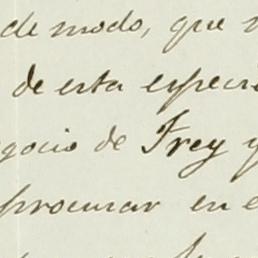 de modo, que
de esta especi
gocio de Frey y
procurar en e